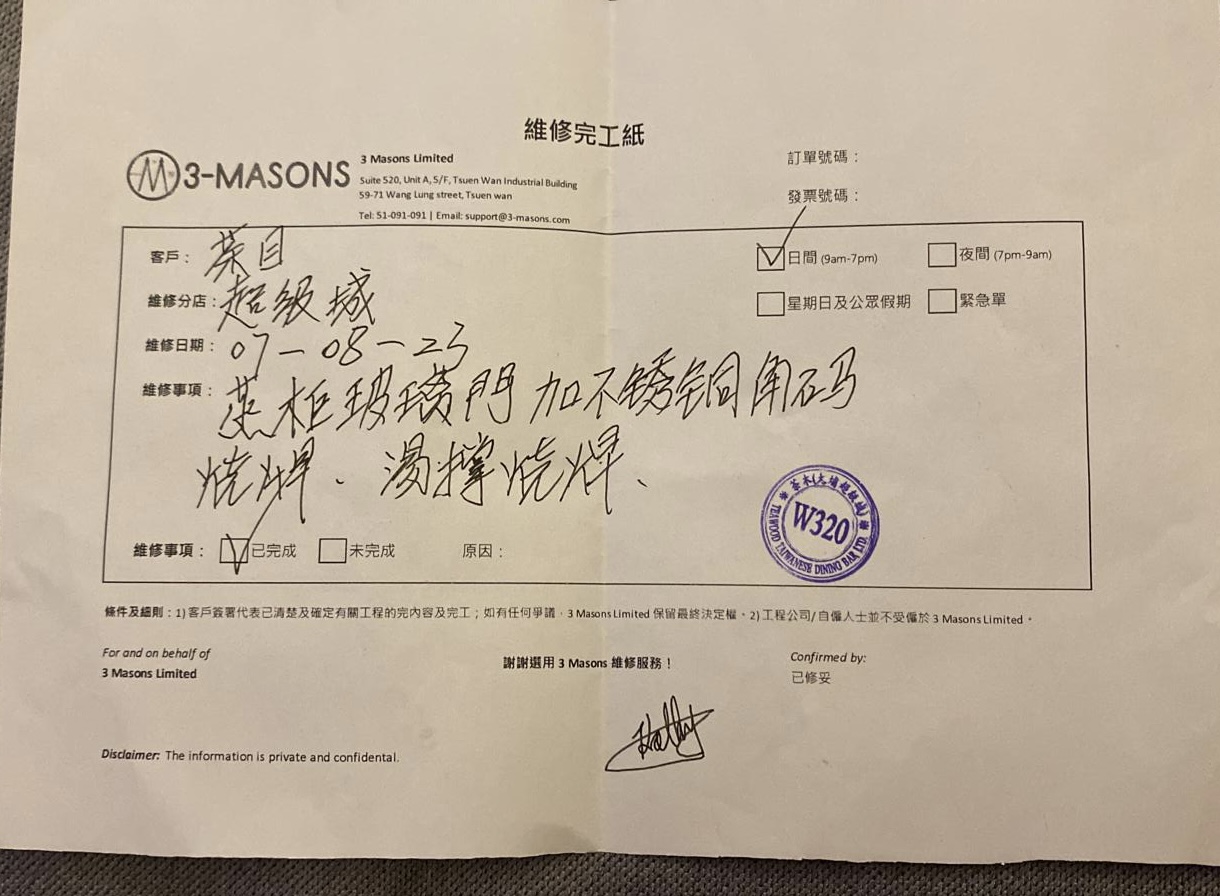 維修完工紙
3-MASONS
3 Masons Limited
Suite 520, Unit A, 5/F, Tsuen Wan Industrial Building
59-71 Wang Lung street, Tsuen wan
Tel: 51-091-091 | Email: support@3-masons.com
訂單號碼：
發票號碼：
客戶：茶目
維修分店：超级城
維修日期：07-08-23
維修事項：蒸柜玻璃門加不锈钢角码
烧焊、湯撑烧焊、
日間 (9am-7pm) 夜間 (7pm-9am)
星期日及公眾假期 緊急單
維修事項： 已完成 未完成 原因：
茶木(大埔超級城)
W320
TEAWOOD TAIWANESE DINING BAR LTD.
條件及細則：1) 客戶簽署代表已清楚及確定有關工程的完內容及完工；如有任何爭議，3 Masons Limited 保留最終決定權。2) 工程公司/ 自僱人士並不受僱於 3 Masons Limited。
For and on behalf of
3 Masons Limited
謝謝選用 3 Masons 維修服務！
Confirmed by:
已修妥
Disclaimer: The information is private and confidential.